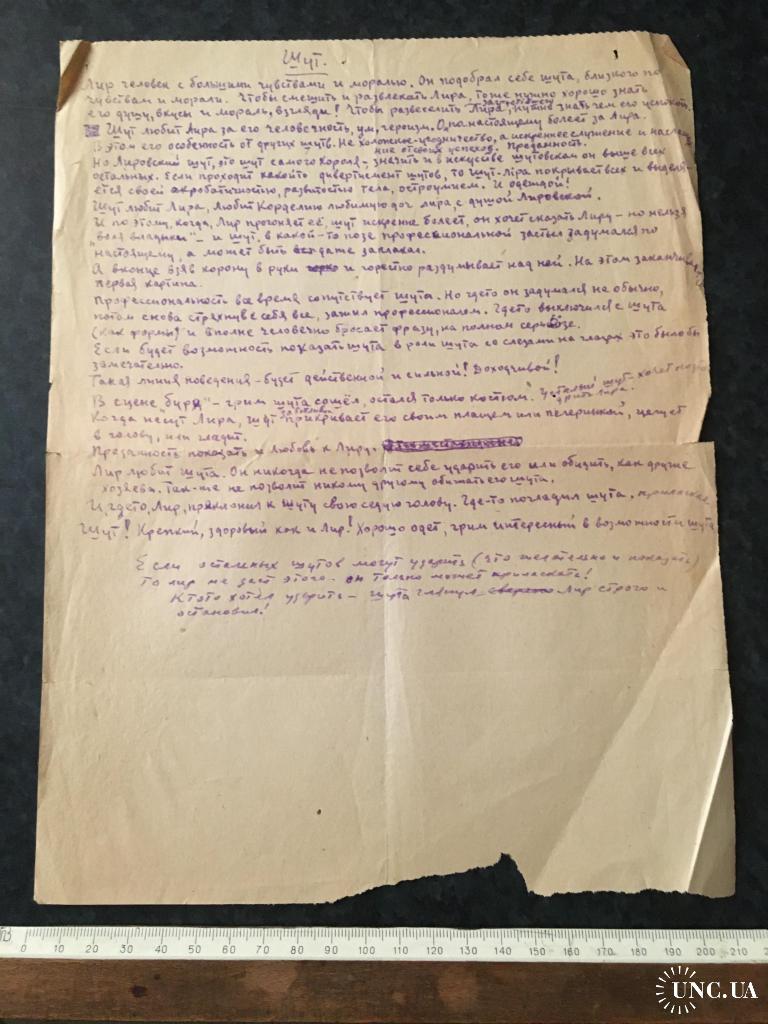 Шут.
Лир человек с большими чувствами и моралью. Он подобрал себе шута, близкого по
чувствам и морали. Чтобы смешить и развлекать Лира, тоже нужно хорошо знать
его душу, вкусы и мораль, взгляды! Чтобы развеселить Лира, нужно знать чем его
Шут любит Лира за его человечность, ум, героизм. Он по настоящему болеет за Лира.
В этом его особенность от других шутов. Не холопское угодничество, а искреннее служение и
преданность.
Но Лировский шут, это шут самого короля, значить и в искустве шутовском он выше всех
остальных. Если проходит какой то дивертисмент шутов, то шут-Ліра покрывает всех и выделя-
ется своей акробатичностью, развитостью тела, остроумием. И одеждой!
Шут любит Лира, любит Корделию любимую доч лира, с душой Лировской.
И по этому, когда, Лир прогоняет её, шут искренне болеет, он хочет сказать Лиру – но нельзя
"воля владыки" – и шут, в какой-то позе профессиональной застыл задумался по
настоящему, а может быть даже заплакал.
А вконце взяв корону в руки и горестно раздумывает над ней. На этом
первая картина.
Профессиональность все время сопутствует шута. Но где то он задумался не обычно,
потом снова стряхнув с себя все, зажил профессионалом. Где то выключился с шута
(как формы) и вполне человечно бросает фразу, на полном серьёзе.
Если будет возможность показать шута в роли шута со слезами на глазах это было бы
замечательно.
Такая линия поведения – будет действенной и сильной! Доходчивой!
В сцене "буря" – грим шута сошёл, остался только костюм.
Когда несут Лира, шут прикрывает его своим плащем или пелеринкой, целует
в голову, или гладит.
Преданность показать и любовь к Лиру.
Лир любит шута. Он никогда не позволит себе ударить его или обидеть, как другие
хозяева. Так-же не позволит никому другому обижать его шута.
И где то, Лир, преклонил к шуту свою седую голову. Где-то погладил шута,
Шут! Крепкий, здоровый как и Лир! Хорошо одет, грим интересный в возможности шута
Если остальных шутов могут ударить (что желательно и показать)
то лир не даст этого. он только может приласкать!
Кто то хотел ударить – шута глянул Лир строго и
остановил!
0 10 20 30 40 50 60 70 80 90 100 110 120 130 140 150 160 170 180 190 200 210
UNC.UA